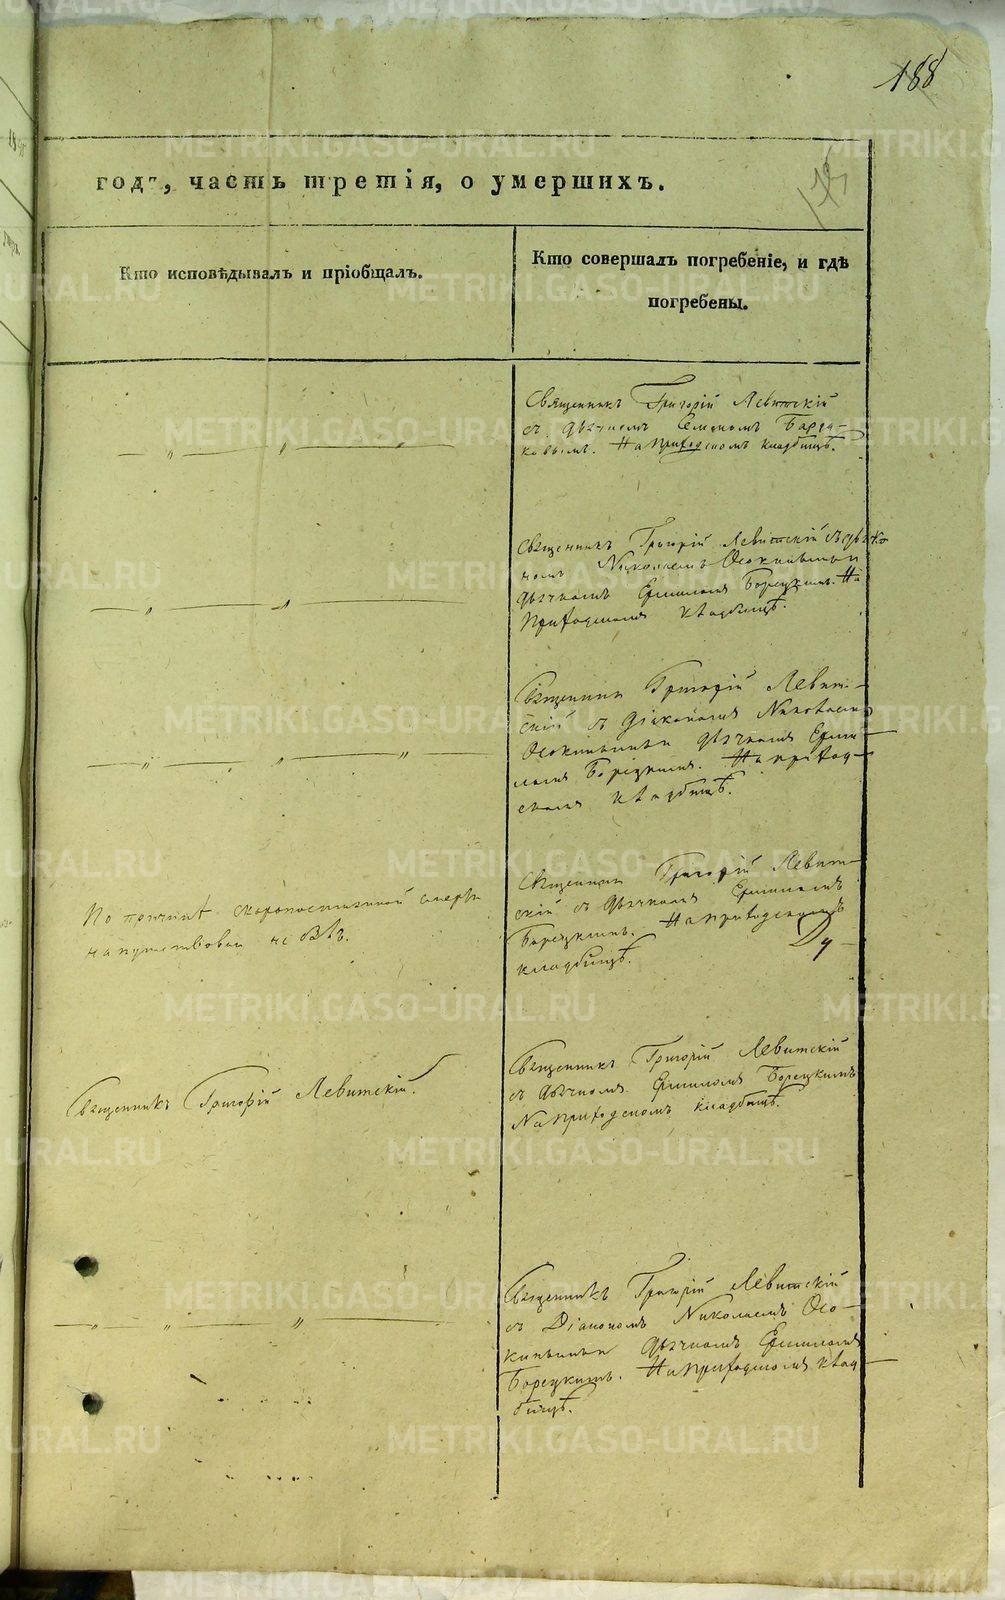 188
годъ, часть третія, о умершихъ.
Кто исповѣдывалъ и пріобщалъ.
Кто совершалъ погребеніе, и гдѣ
погребены.
Священникъ Григорій Левитскій
съ дьячкомъ
На приходскомъ кладбищѣ.
Священникъ Григорій Левитскій съ
Николаемъ Осокинымъ и
дьячкомъ Ермиломъ Борецкимъ. На
приходскомъ кладбищѣ.
Священникъ Григорій Левит-
скій съ Діакономъ Николаемъ
Осокинымъ и дьячкомъ Ерми-
ломъ Борецкимъ. На приход-
скомъ кладбищѣ.
По причинѣ скоропостижной смерти
напутствован не былъ.
Священникъ Григорій Левит-
скій съ дьячкомъ Ермиломъ
Борецкимъ. На приходскомъ
кладбищѣ.
Священникъ Григорій Левитскій.
Священникъ Григорій Левитскій
съ дьячкомъ Ермиломъ Борецкимъ
На приходскомъ кладбищѣ.
Священникъ Григорій Левитскій
съ Діакономъ Николаемъ Осо-
кинымъ и дьячкомъ Ермиломъ
Борецкимъ. На приходскомъ клад-
бищѣ.
METRIKI.GASO-URAL.RU